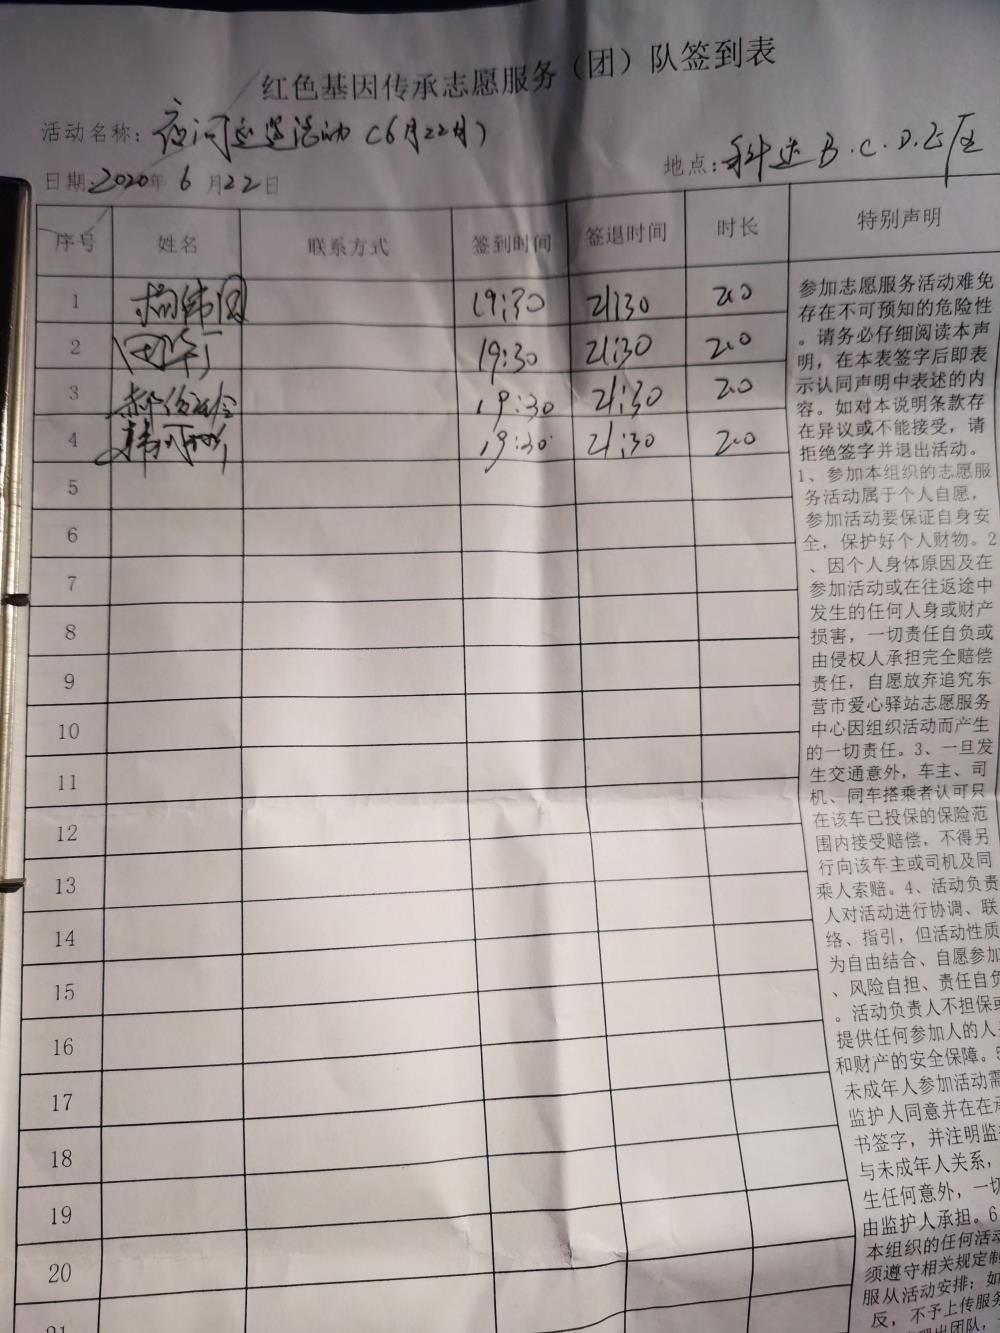 红色基因传承志愿服务（团）队签到表
活动名称：夜间巡逻活动（6月22日）
地点：科达B.C.D.E座
日期2020年6月22日
序号 姓名 联系方式 签到时间 签退时间 时长 特别声明
1 19:30 21:30 2.0
2 19:30 21:30 2.0
3 19:30 21:30 2.0
4 19:30 21:30 2.0
5
6
7
8
9
10
11
12
13
14
15
16
17
18
19
20
21
参加志愿服务活动难免
存在不可预知的危险性
。请务必仔细阅读本声
明，在本表签字后即表
示认同声明中表述的内
容。如对本说明条款存
在异议或不能接受，请
拒绝签字并退出活动。
1、参加本组织的志愿服
务活动属于个人自愿，
参加活动要保证自身安
全，保护好个人财物。2
、因个人身体原因及在
参加活动或在往返途中
发生的任何人身或财产
损害，一切责任自负或
由侵权人承担完全赔偿
责任，自愿放弃追究东
营市爱心驿站志愿服务
中心因组织活动而产生
的一切责任。3、一旦发
生交通意外，车主、司
机、同车搭乘者认可只
在该车已投保的保险范
围内接受赔偿，不得另
行向该车主或司机及同
乘人索赔。4、活动负责
人对活动进行协调、联
络、指引，但活动性质
为自由结合、自愿参加
、风险自担、责任自负
。活动负责人不担保或
提供任何参加人的人
和财产的安全保障。5
未成年人参加活动需
监护人同意并在在承
书签字，并注明监
与未成年人关系，
生任何意外，一切
由监护人承担。6
本组织的任何活动
须遵守相关规定制
服从活动安排；如
反，不予上传服务
出团队，